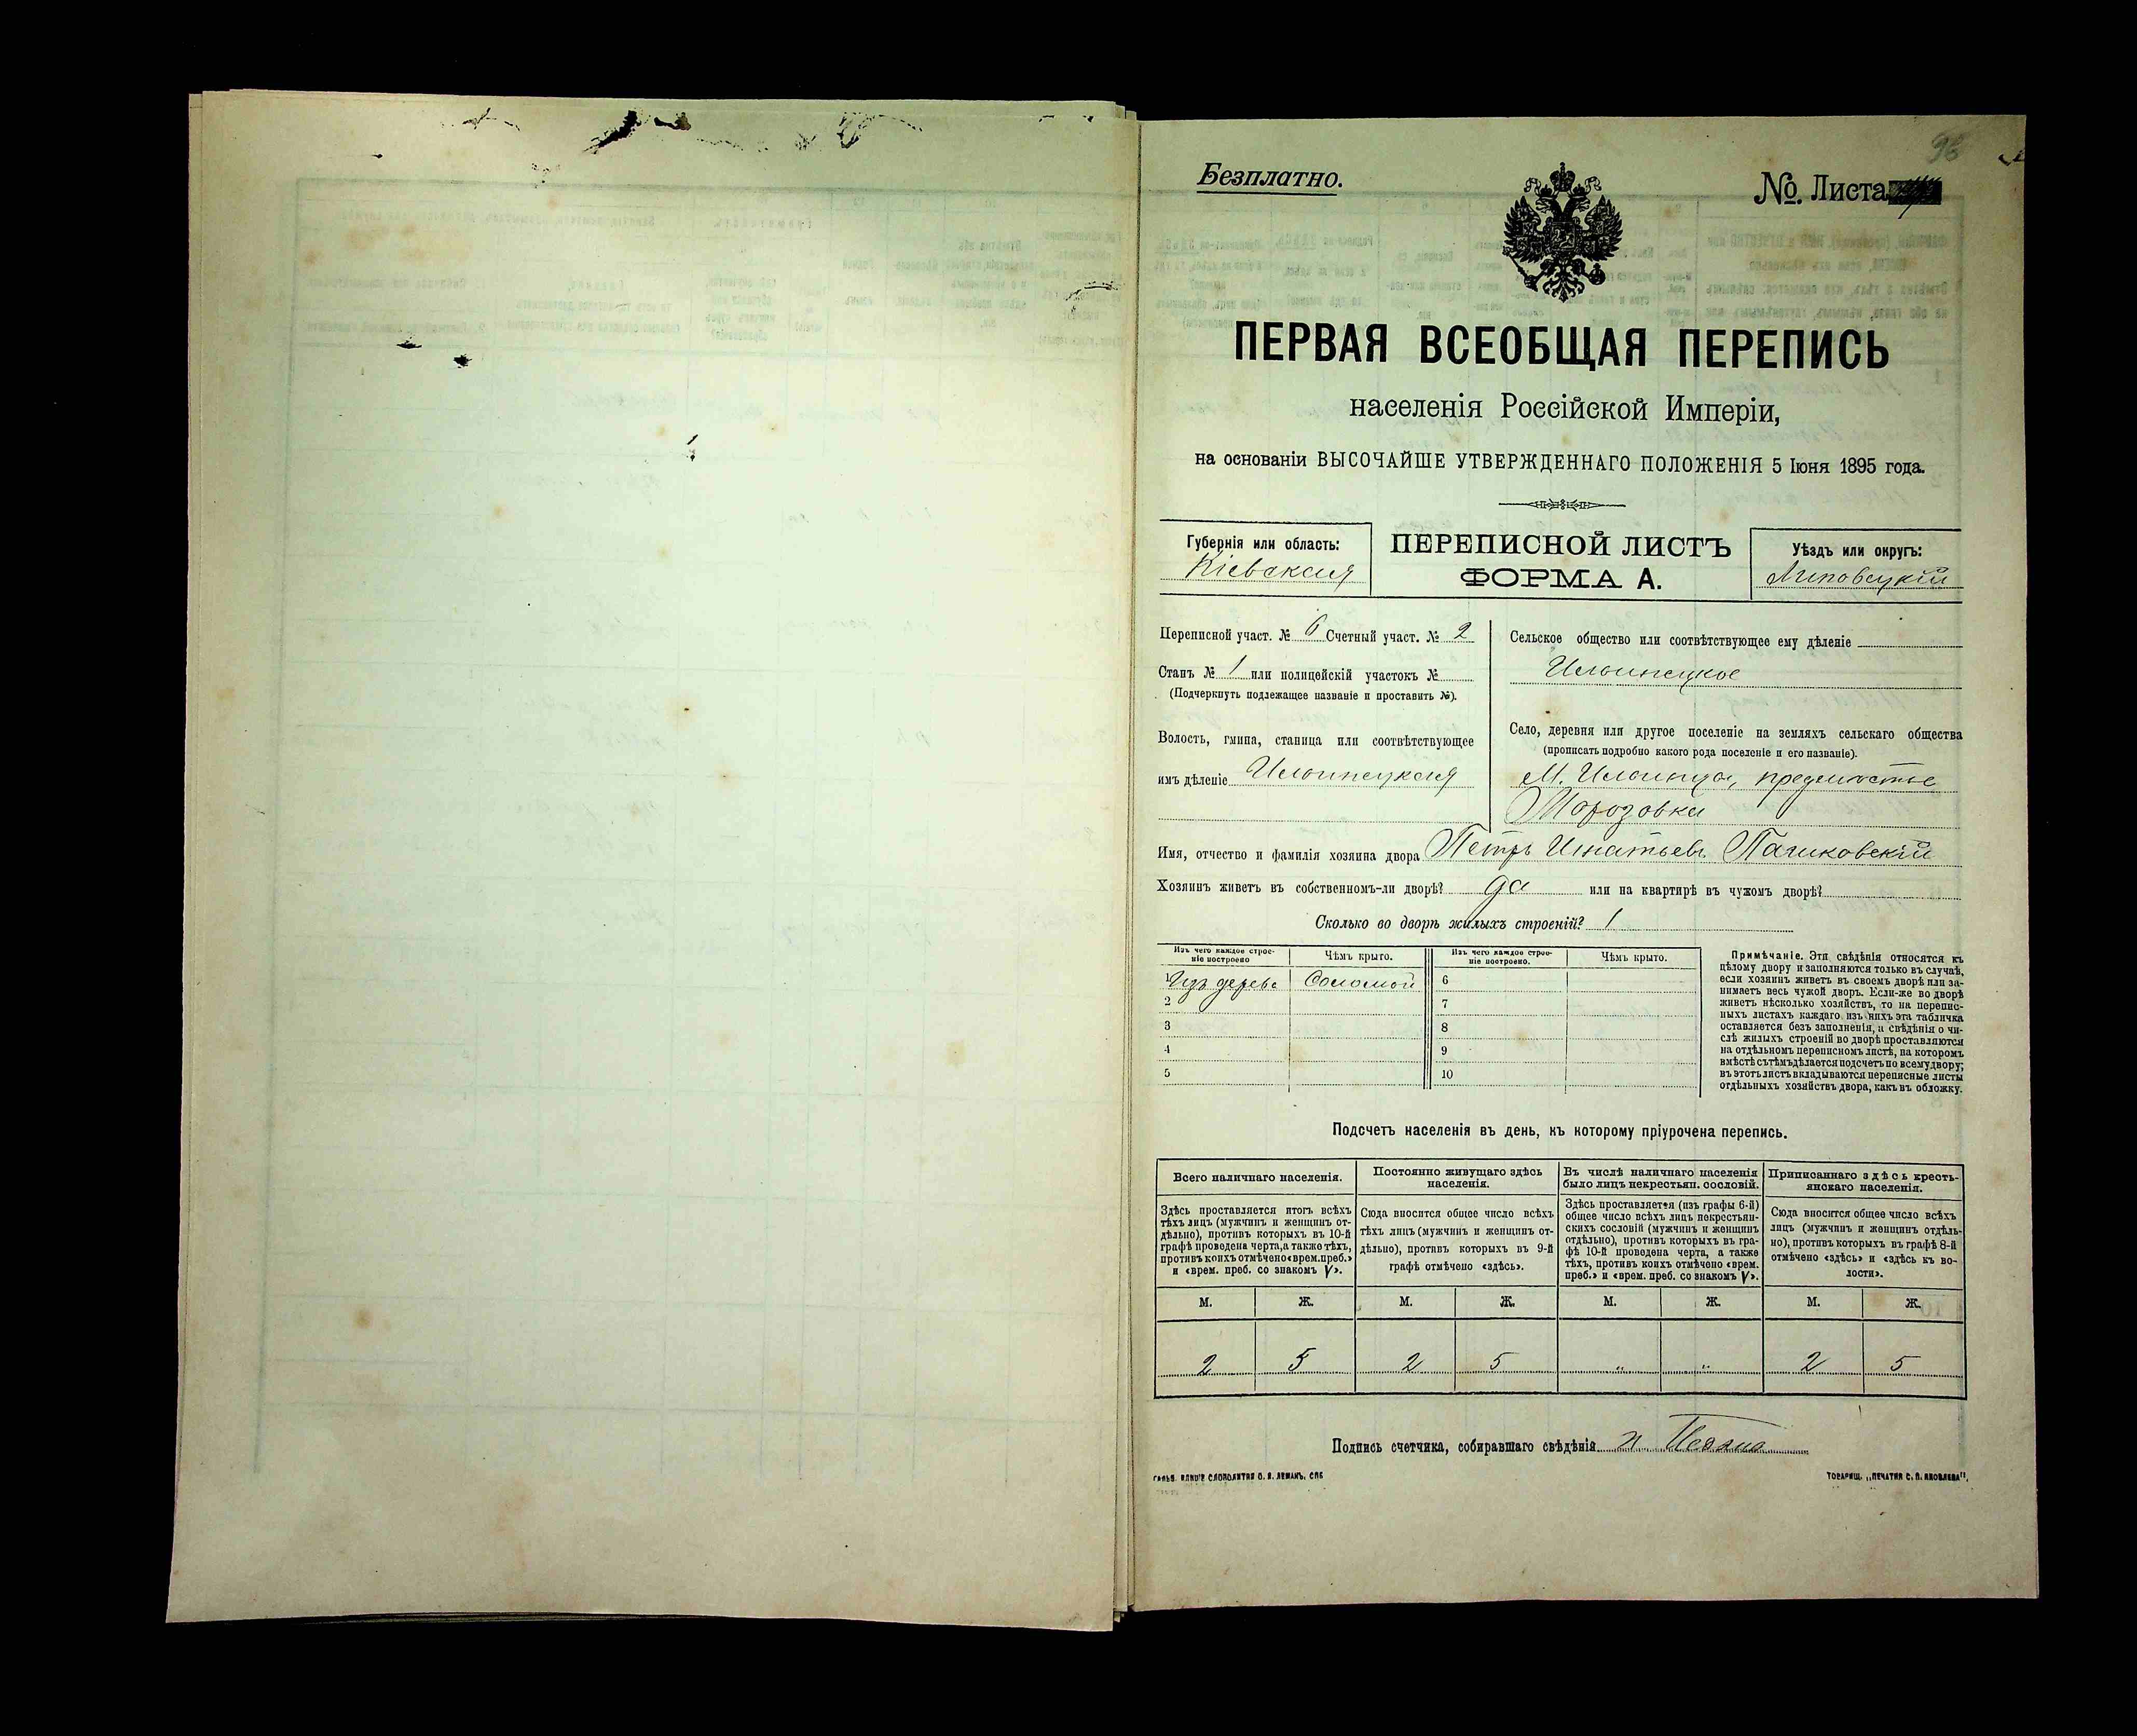 98
Безплатно.
No. Листа
ПЕРВАЯ ВСЕОБЩАЯ ПЕРЕПИСЬ
населенія Россійской Имперіи,
на основаніи ВЫСОЧАЙШЕ УТВЕРЖДЕННАГО ПОЛОЖЕНІЯ 5 Іюня 1895 года.
Губернія или область:
Кіевская
ПЕРЕПИСНОЙ ЛИСТЪ
ФОРМА А.
Уѣздъ или округъ:
Липовецкій
Переписной участ. № 6 Счетный участ. № 2
Станъ № 1 или полицейскій участокъ №
(Подчеркнуть подлежащее названіе и проставить №).
Волость, гмина, станица или соотвѣтствующее
имъ дѣленіе Ильинецкая
Сельское общество или соотвѣтствующее ему дѣленіе
Ильинецкое
Село, деревня или другое поселеніе на земляхъ сельскаго общества
(прописать подробно какого рода поселеніе и его названіе).
М. Ильинцы, предмѣстье
Морозовка
Имя, отчество и фамилія хозяина двора Петръ Игнатьевъ Пашковскій
Хозяинъ живетъ въ собственномъ-ли дворѣ? да или на квартирѣ въ чужомъ дворѣ?
Сколько во дворѣ жилыхъ строеній? 1
Изъ чего каждое строе-
ніе построено
Чѣмъ крыто.
Изъ чего каждое строе-
ніе построено.
Чѣмъ крыто.
1 Изъ дерева Соломой 6
2 7
3 8
4 9
5 10
Примѣчаніе. Эти свѣдѣнія относятся къ
цѣлому двору и заполняются только въ случаѣ,
если хозяинъ живетъ въ своемъ дворѣ или за-
нимаетъ весь чужой дворъ. Если-же во дворѣ
живетъ нѣсколько хозяйствъ, то на перепис-
ныхъ листахъ каждаго изъ нихъ эта табличка
оставляется безъ заполненія, и свѣдѣнія о чи-
слѣ жилыхъ строеній во дворѣ проставляются
на отдѣльномъ переписномъ листѣ, на которомъ
вмѣстѣ съ тѣмъ дѣлается подсчетъ по всему двору;
въ этотъ листъ вкладываются переписные листы
отдѣльныхъ хозяйствъ двора, какъ въ обложку.
Подсчетъ населенія въ день, къ которому пріурочена перепись.
Всего наличнаго населенія.
Здѣсь проставляется итогъ всѣхъ
тѣхъ лицъ (мужчинъ и женщинъ от-
дѣльно), противъ которыхъ въ 10-й
графѣ проведена черта, а также тѣхъ,
противъ коихъ отмѣчено «врем. преб.»
и «врем. преб. со знакомъ V».
Постоянно живущаго здѣсь
населенія.
Сюда вносится общее число всѣхъ
тѣхъ лицъ (мужчинъ и женщинъ от-
дѣльно), противъ которыхъ въ 9-й
графѣ отмѣчено «здѣсь».
Въ числѣ наличнаго населенія
было лицъ некрестьян. сословій.
Здѣсь проставляется (изъ графы 6-й)
общее число всѣхъ лицъ некрестьян-
скихъ сословій (мужчинъ и женщинъ
отдѣльно), противъ которыхъ въ гра-
фѣ 10-й проведена черта, а также
тѣхъ, противъ коихъ отмѣчено «врем.
преб.» и «врем. преб. со знакомъ V».
Приписаннаго здѣсь кресть-
янскаго населенія.
Сюда вносится общее число всѣхъ
лицъ (мужчинъ и женщинъ отдѣль-
но), противъ которыхъ въ графѣ 8-й
отмѣчено «здѣсь» и «здѣсь къ во-
лости».
М. Ж. М. Ж. М. Ж. М. Ж.
2 5 2 5 " " 2 5
Подпись счетчика, собиравшаго свѣдѣнія
ТОВАРИЩ. „ПЕЧАТНЯ С. П. ЯКОВЛЕВА".